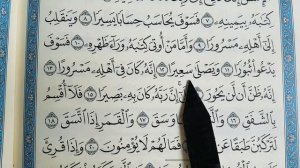 كِتَٰبَهُۥ بِيَمِينِهِۦ ٧ فَسَوْفَ يُحَاسَبُ حِسَابًا يَسِيرًا ٨ وَيَنقَلِبُ
إِلَىٰٓ أَهْلِهِۦ مَسْرُورًا ٩ وَأَمَّا مَنْ أُوتِيَ كِتَٰبَهُۥ وَرَآءَ ظَهْرِهِۦ ١٠ فَسَوْفَ
يَدْعُوا۟ ثُبُورًا ١١ وَيَصْلَىٰ سَعِيرًا ١٢ إِنَّهُۥ كَانَ فِيٓ أَهْلِهِۦ مَسْرُورًا ١٣
إِنَّهُۥ ظَنَّ أَن لَّن يَحُورَ إِنَّ رَبَّهُۥ كَانَ بِهِۦ بَصِيرًا ١٥ فَلَآ أُقْسِمُ
بِٱلشَّفَقِ ١٦ وَٱلَّيْلِ وَمَا وَسَقَ ١٧ وَٱلْقَمَرِ إِذَا ٱتَّسَقَ ١٨
لَتَرْكَبُنَّ طَبَقًا عَن طَبَقٍ ١٩ فَمَا لَهُمْ لَا يُؤْمِنُونَ ٢٠ وَإِذَا قُرِئَ